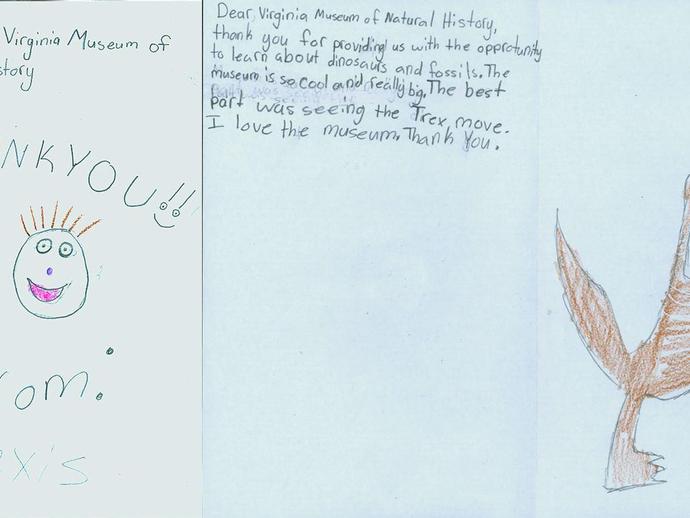 Virginia Museum of
story
NKYOU!!
rom:
exis
Dear, Virginia Museum of Natural History,
thank you for providing us with the opprotunity
to learn about dinosaurs and fossils. The
museum is so cool and really big. The best
part was seeing the Trex move.
I love the museum. Thank You.